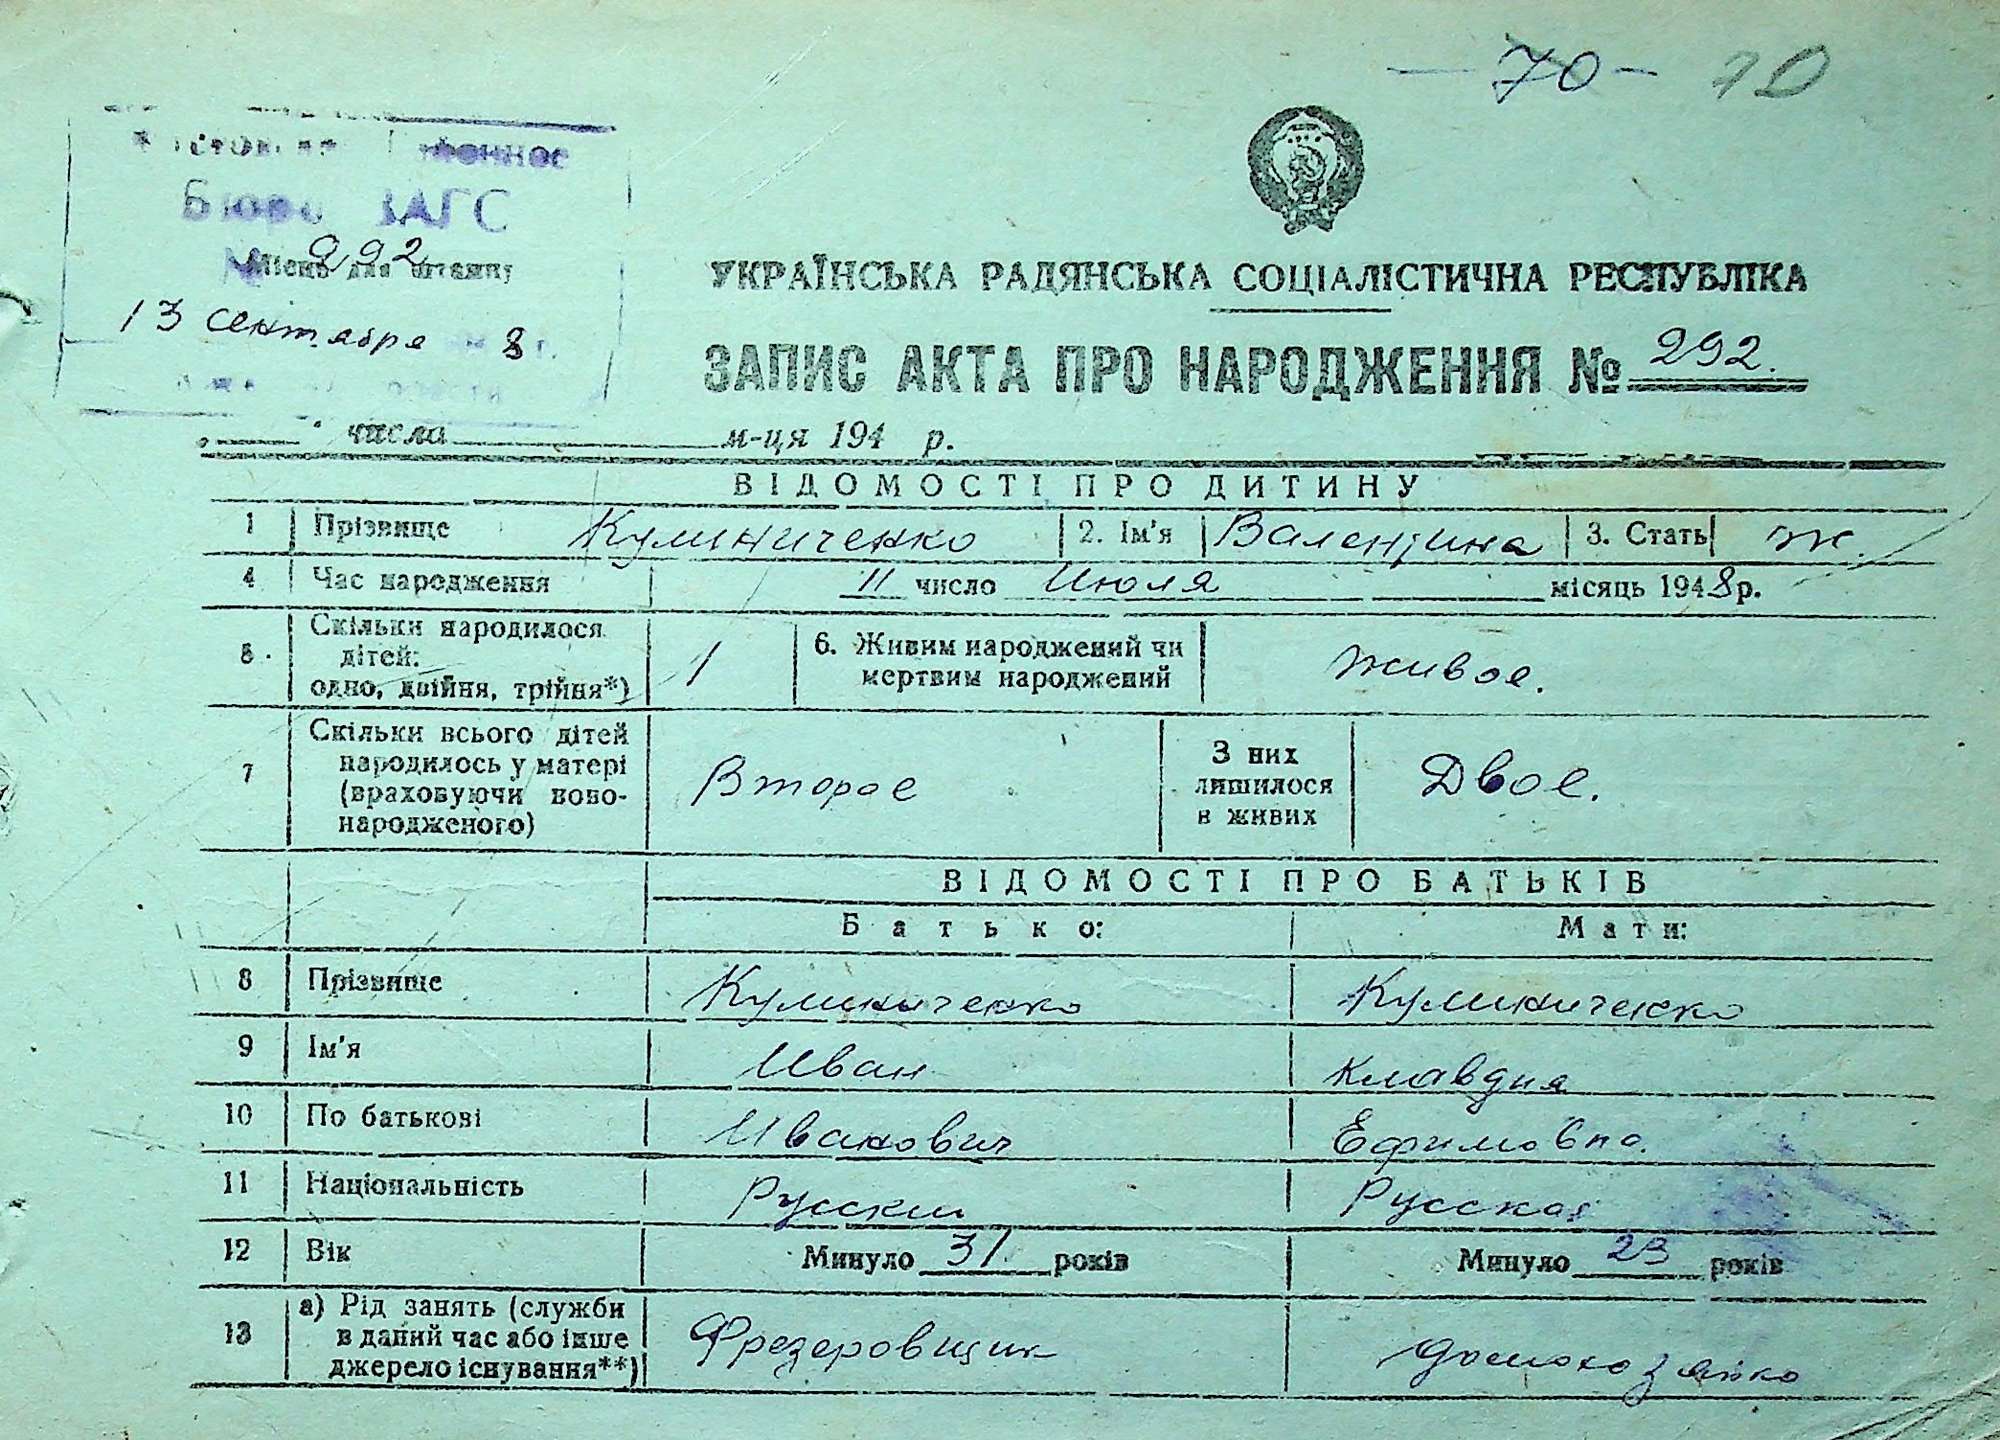 — 70 — 10
Бюро ЗАГС
№ 292
Місце для штампу
13 сентября 8 г.
УКРАЇНСЬКА РАДЯНСЬКА СОЦІАЛІСТИЧНА РЕСПУБЛІКА
ЗАПИС АКТА ПРО НАРОДЖЕННЯ № 292.
„ " числа м-ця 194 р.
ВІДОМОСТІ ПРО ДИТИНУ
1 Прізвище Кулиниченко 2. Ім'я Валентина 3. Стать ж.
4 Час народження 11 число Июля місяць 1948 р.
5 Скільки народилося
дітей:
одно, двійня, трійня*) 1 6. Живим народжений чи
мертвим народжений живое.
7 Скільки всього дітей
народилось у матері
(враховуючи ново-
народженого) Второе З них
лишилося
в живих Двое.
ВІДОМОСТІ ПРО БАТЬКІВ
Батько: Мати:
8 Прізвище Кулиниченко Кулиниченко
9 Ім'я Иван Клавдия
10 По батькові Иванович Ефимовна.
11 Національність Русский Русская
12 Вік Минуло 31 років Минуло 23 років
13 а) Рід занять (служби
в даний час або інше
джерело існування**) Фрезеровщик домохозяйка